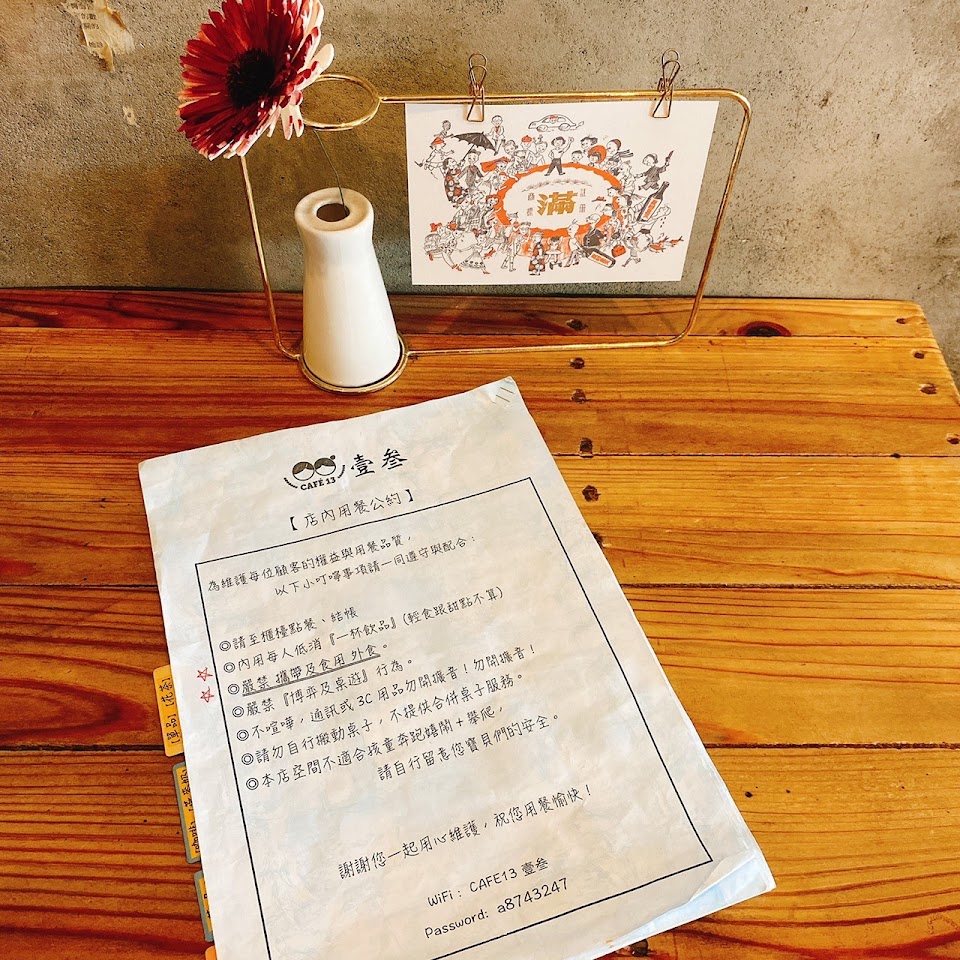 滿
CAFÉ 13 壹叁
【店內用餐公約】
為維護每位顧客的權益與用餐品質，
以下小叮嚀事項請一同遵守與配合：
◎請至櫃檯點餐、結帳
◎內用每人低消『一杯飲品』(輕食跟甜點不算)
◎嚴禁 攜帶及食用 外食。
◎嚴禁『博弈及桌遊』行為。
◎不喧嘩，通訊或 3C 用品勿開擴音！勿開擴音！
◎請勿自行搬動桌子，不提供合併桌子服務。
◎本店空間不適合孩童奔跑嬉鬧+攀爬，
請自行留意您寶貝們的安全。
謝謝您一起用心維護，祝您用餐愉快！
WiFi : CAFE13 壹叁
Password: a8743247